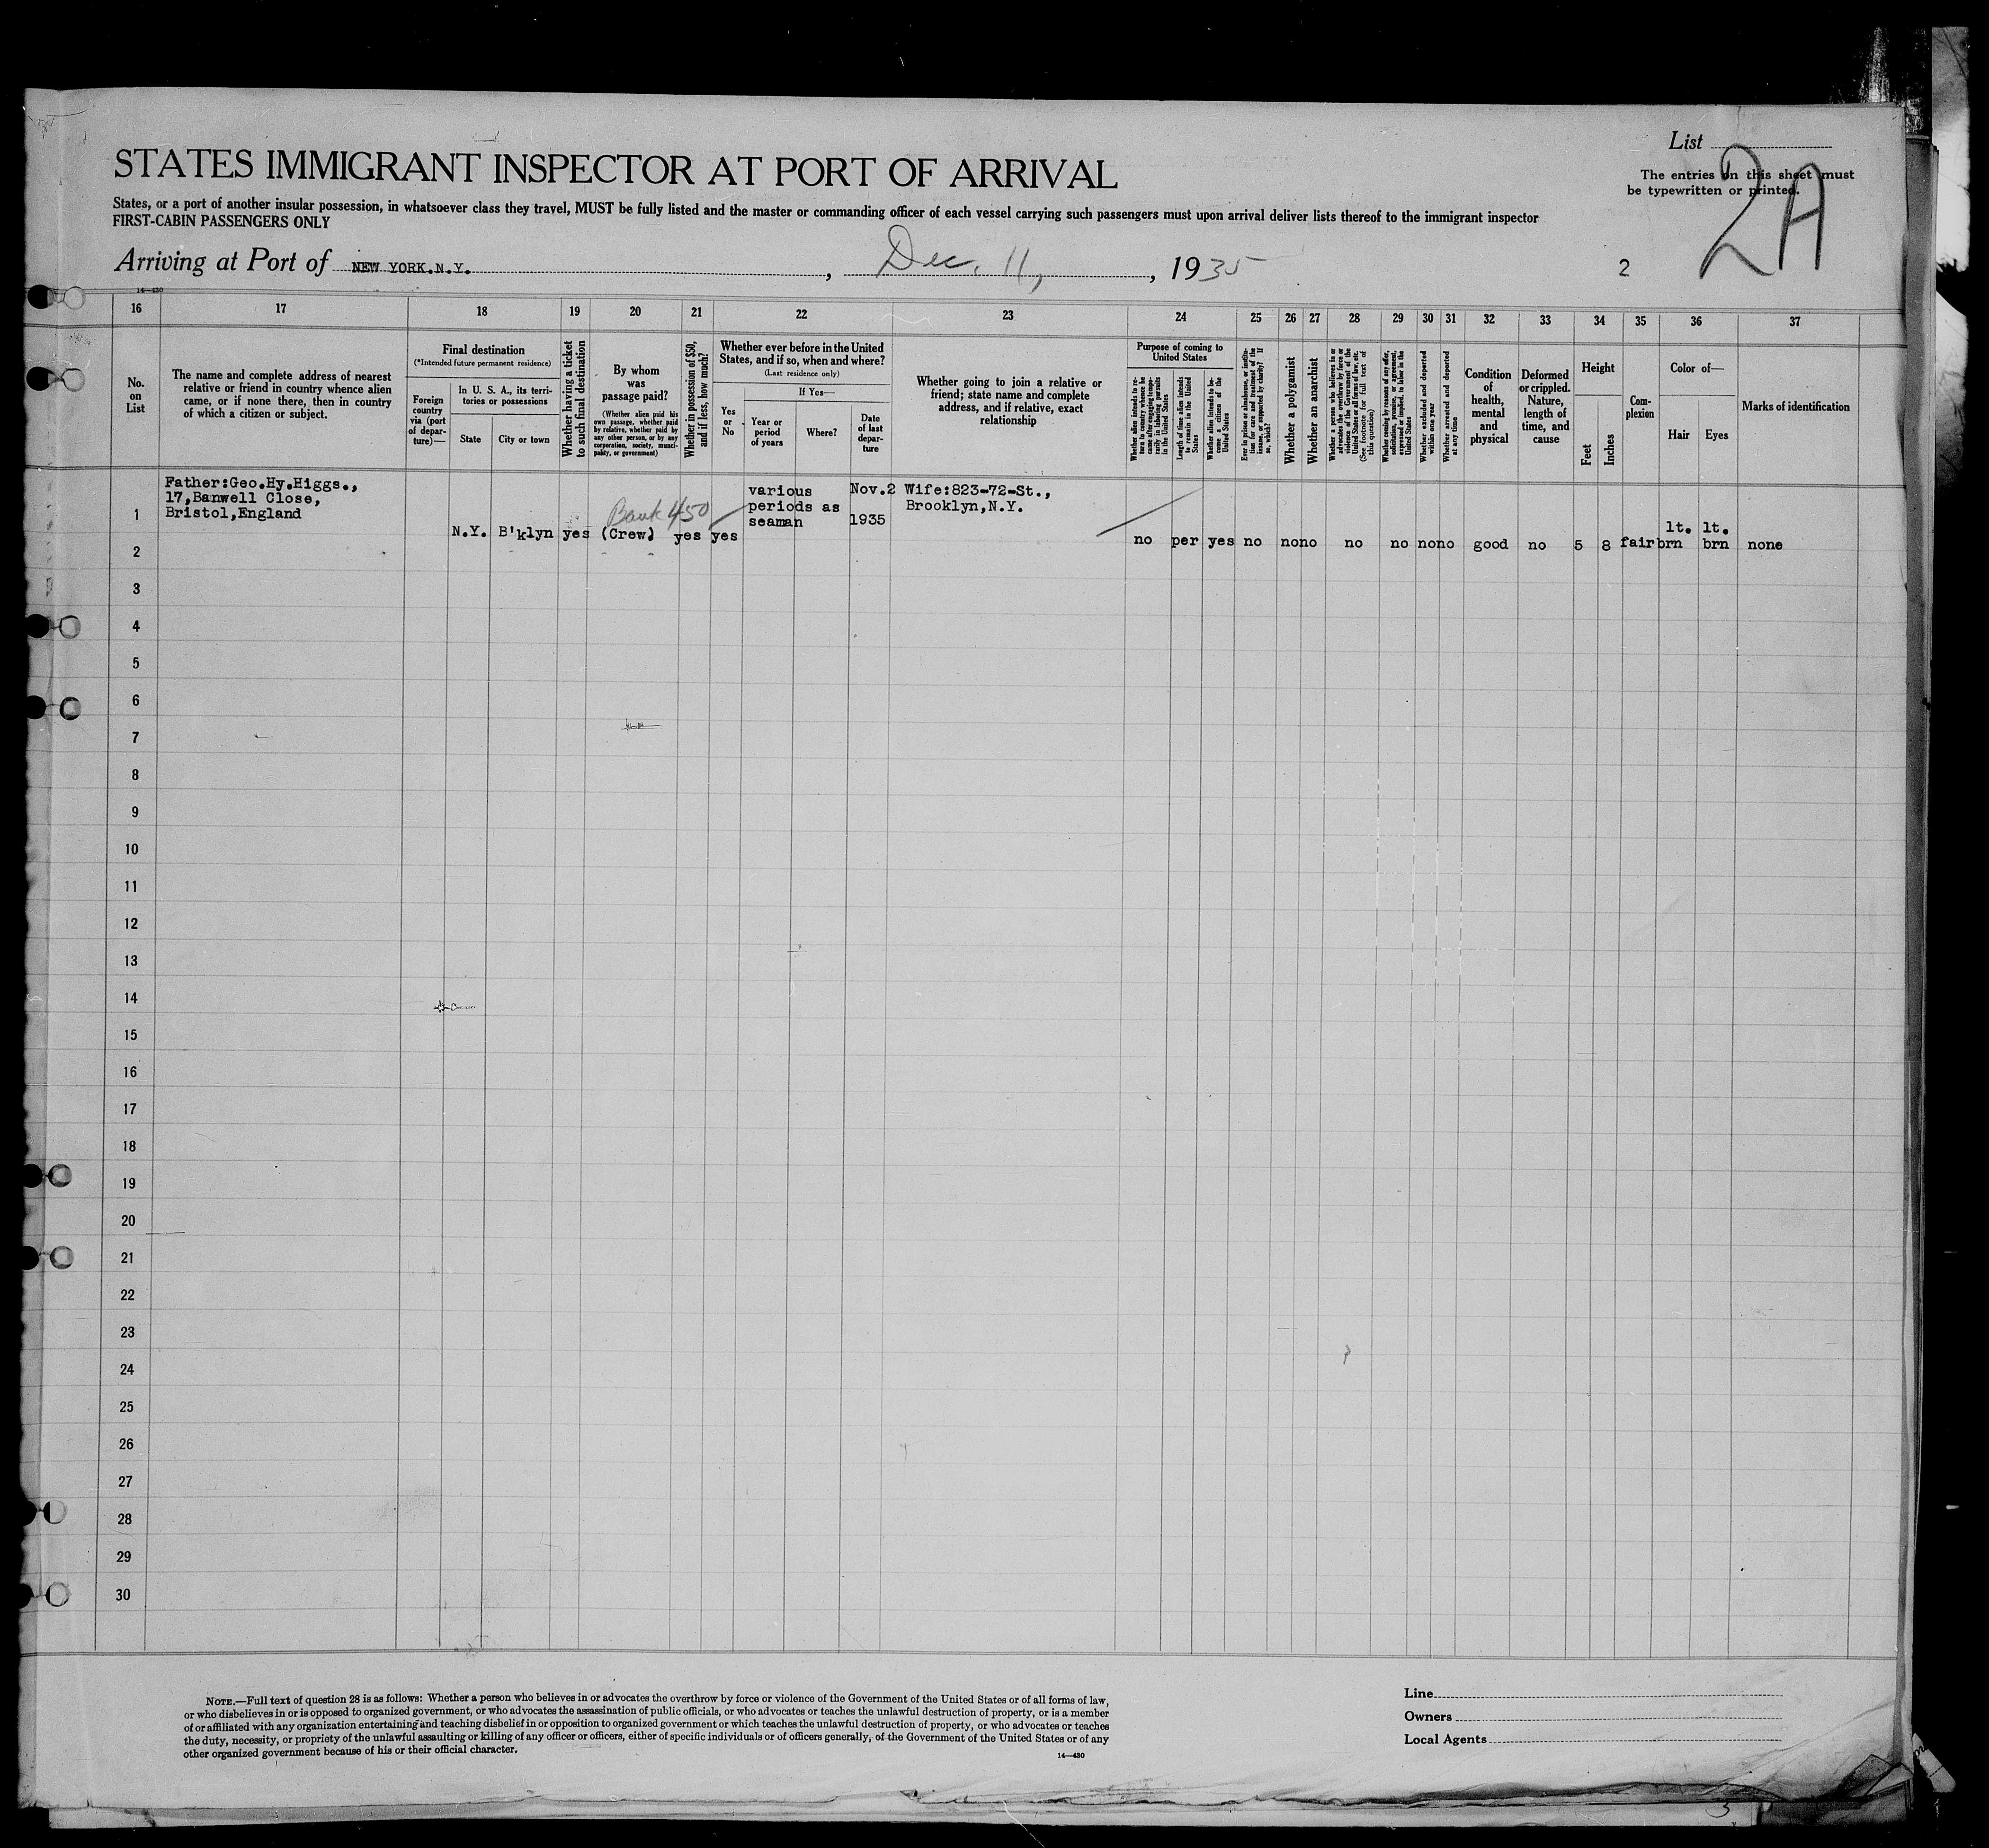 List
STATES IMMIGRANT INSPECTOR AT PORT OF ARRIVAL
The entries on this sheet must
be typewritten or printed.
2A
States, or a port of another insular possession, in whatsoever class they travel, MUST be fully listed and the master or commanding officer of each vessel carrying such passengers must upon arrival deliver lists thereof to the immigrant inspector
FIRST-CABIN PASSENGERS ONLY
Arriving at Port of NEW YORK.N.Y. , Dec. 11, , 1935
2
14—430
16 17 18 19 20 21 22 23 24 25 26 27 28 29 30 31 32 33 34 35 36 37
No.
on
List
The name and complete address of nearest
relative or friend in country whence alien
came, or if none there, then in country
of which a citizen or subject.
Final destination
(*Intended future permanent residence)
Foreign
country
via (port
of depar-
ture)—
In U. S. A., its terri-
tories or possessions
State
City or town
Whether having a ticket
to such final destination
By whom
was
passage paid?
(Whether alien paid his
own passage, whether paid
by relative, whether paid by
any other person, or by any
corporation, society, munici-
pality, or government)
Whether in possession of $50,
and if less, how much?
Whether ever before in the United
States, and if so, when and where?
(Last residence only)
Yes
or
No
If Yes—
Year or
period
of years
Where?
Date
of last
depar-
ture
Whether going to join a relative or
friend; state name and complete
address, and if relative, exact
relationship
Purpose of coming to
United States
Whether alien intends to re-
turn to country whence he
came after engaging tempo-
rarily in laboring pursuits
in the United States
Length of time alien intends
to remain in the United
States
Whether alien intends to be-
come a citizen of the
United States
Ever in prison or almshouse, or institu-
tion for care and treatment of the
insane, or supported by charity? If
so, which?
Whether a polygamist
Whether an anarchist
Whether a person who believes in or
advocates the overthrow by force or
violence of the Government of the
United States or all forms of law, etc.
(See footnote for full text of
this question)
Whether coming by reasons of any offer,
solicitation, promise, or agreement,
expressed or implied, to labor in the
United States
Whether excluded and deported
within one year
Whether arrested and deported
at any time
Condition
of
health,
mental
and
physical
Deformed
or crippled.
Nature,
length of
time, and
cause
Height
Feet
Inches
Com-
plexion
Color of—
Hair
Eyes
Marks of identification
Father:Geo.Hy.Higgs.,
17,Banwell Close,
Bristol,England
N.Y. B'klyn yes
Bank 450
(Crew) yes yes
various
periods as
seaman
Nov.2
1935
Wife:823-72-St.,
Brooklyn,N.Y.
no per yes no no no no no no no good no 5 8 fair lt. brn lt. brn none
1
2
3
4
5
6
7
8
9
10
11
12
13
14
15
16
17
18
19
20
21
22
23
24
25
26
27
28
29
30
NOTE.—Full text of question 28 is as follows: Whether a person who believes in or advocates the overthrow by force or violence of the Government of the United States or of all forms of law,
or who disbelieves in or is opposed to organized government, or who advocates the assassination of public officials, or who advocates or teaches the unlawful destruction of property, or is a member
of or affiliated with any organization entertaining and teaching disbelief in or opposition to organized government or which teaches the unlawful destruction of property, or who advocates or teaches
the duty, necessity, or propriety of the unlawful assaulting or killing of any officer or officers, either of specific individuals or of officers generally, of the Government of the United States or of any
other organized government because of his or their official character.
14—430
Line
Owners
Local Agents
3